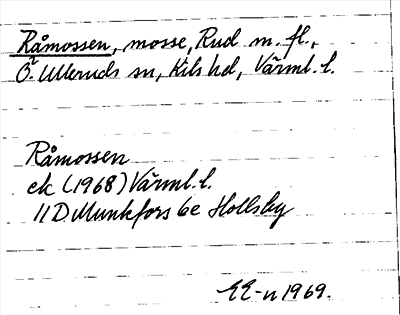 Råmossen, mosse, Rud m. fl.,
Ö. Ulleruds sn, Kils hd, Värml. l.
Råmossen
ek (1968) Värml. l.
11D Munkfors 6e Hollsby
EE-n 1969.